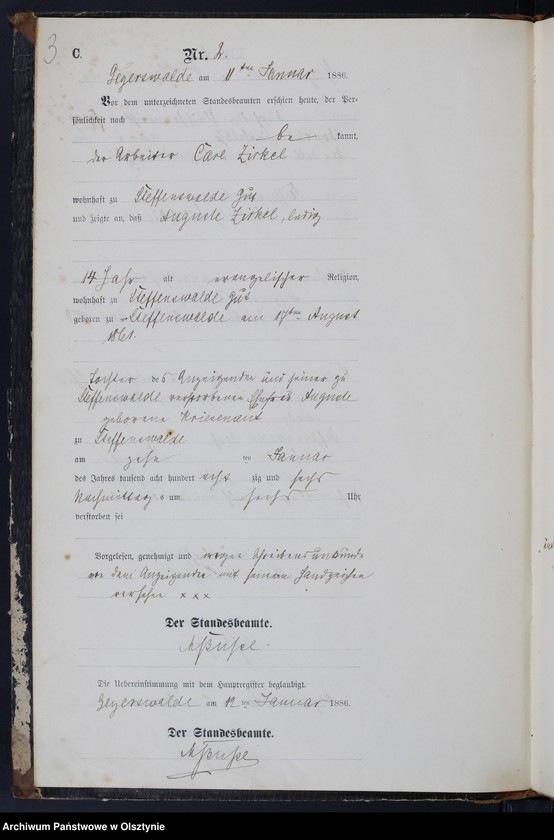 3
C.
Nr. 2.
Geyerswalde am 11ten Januar 1886.
Vor dem unterzeichneten Standesbeamten erschien heute, der Per-
sönlichkeit nach
be kannt,
der Arbeiter Carl Zirkel
wohnhaft zu Steffenswalde Gut
und zeigte an, daß Auguste Zirkel, ledig
14 Jahr alt evangelischer Religion,
wohnhaft zu Steffenswalde Gut
geboren zu Steffenswalde am 17ten August
Tochter des Anzeigenden und seiner zu
Steffenswalde verstorbenen Ehefrau Auguste
geborene
zu Steffenswalde
am zehn ten Januar
des Jahres tausend acht hundert acht zig und sechs
Nachmittags um sechs Uhr
verstorben sei
Vorgelesen, genehmigt und wegen Schreibensunkunde
von dem Anzeigenden mit seinem Handzeichen
versehen x x x
Der Standesbeamte.
Die Uebereinstimmung mit dem Hauptregister beglaubigt.
Geyerswalde am 12ten Januar 1886.
Der Standesbeamte.
Archiwum Państwowe w Olsztynie